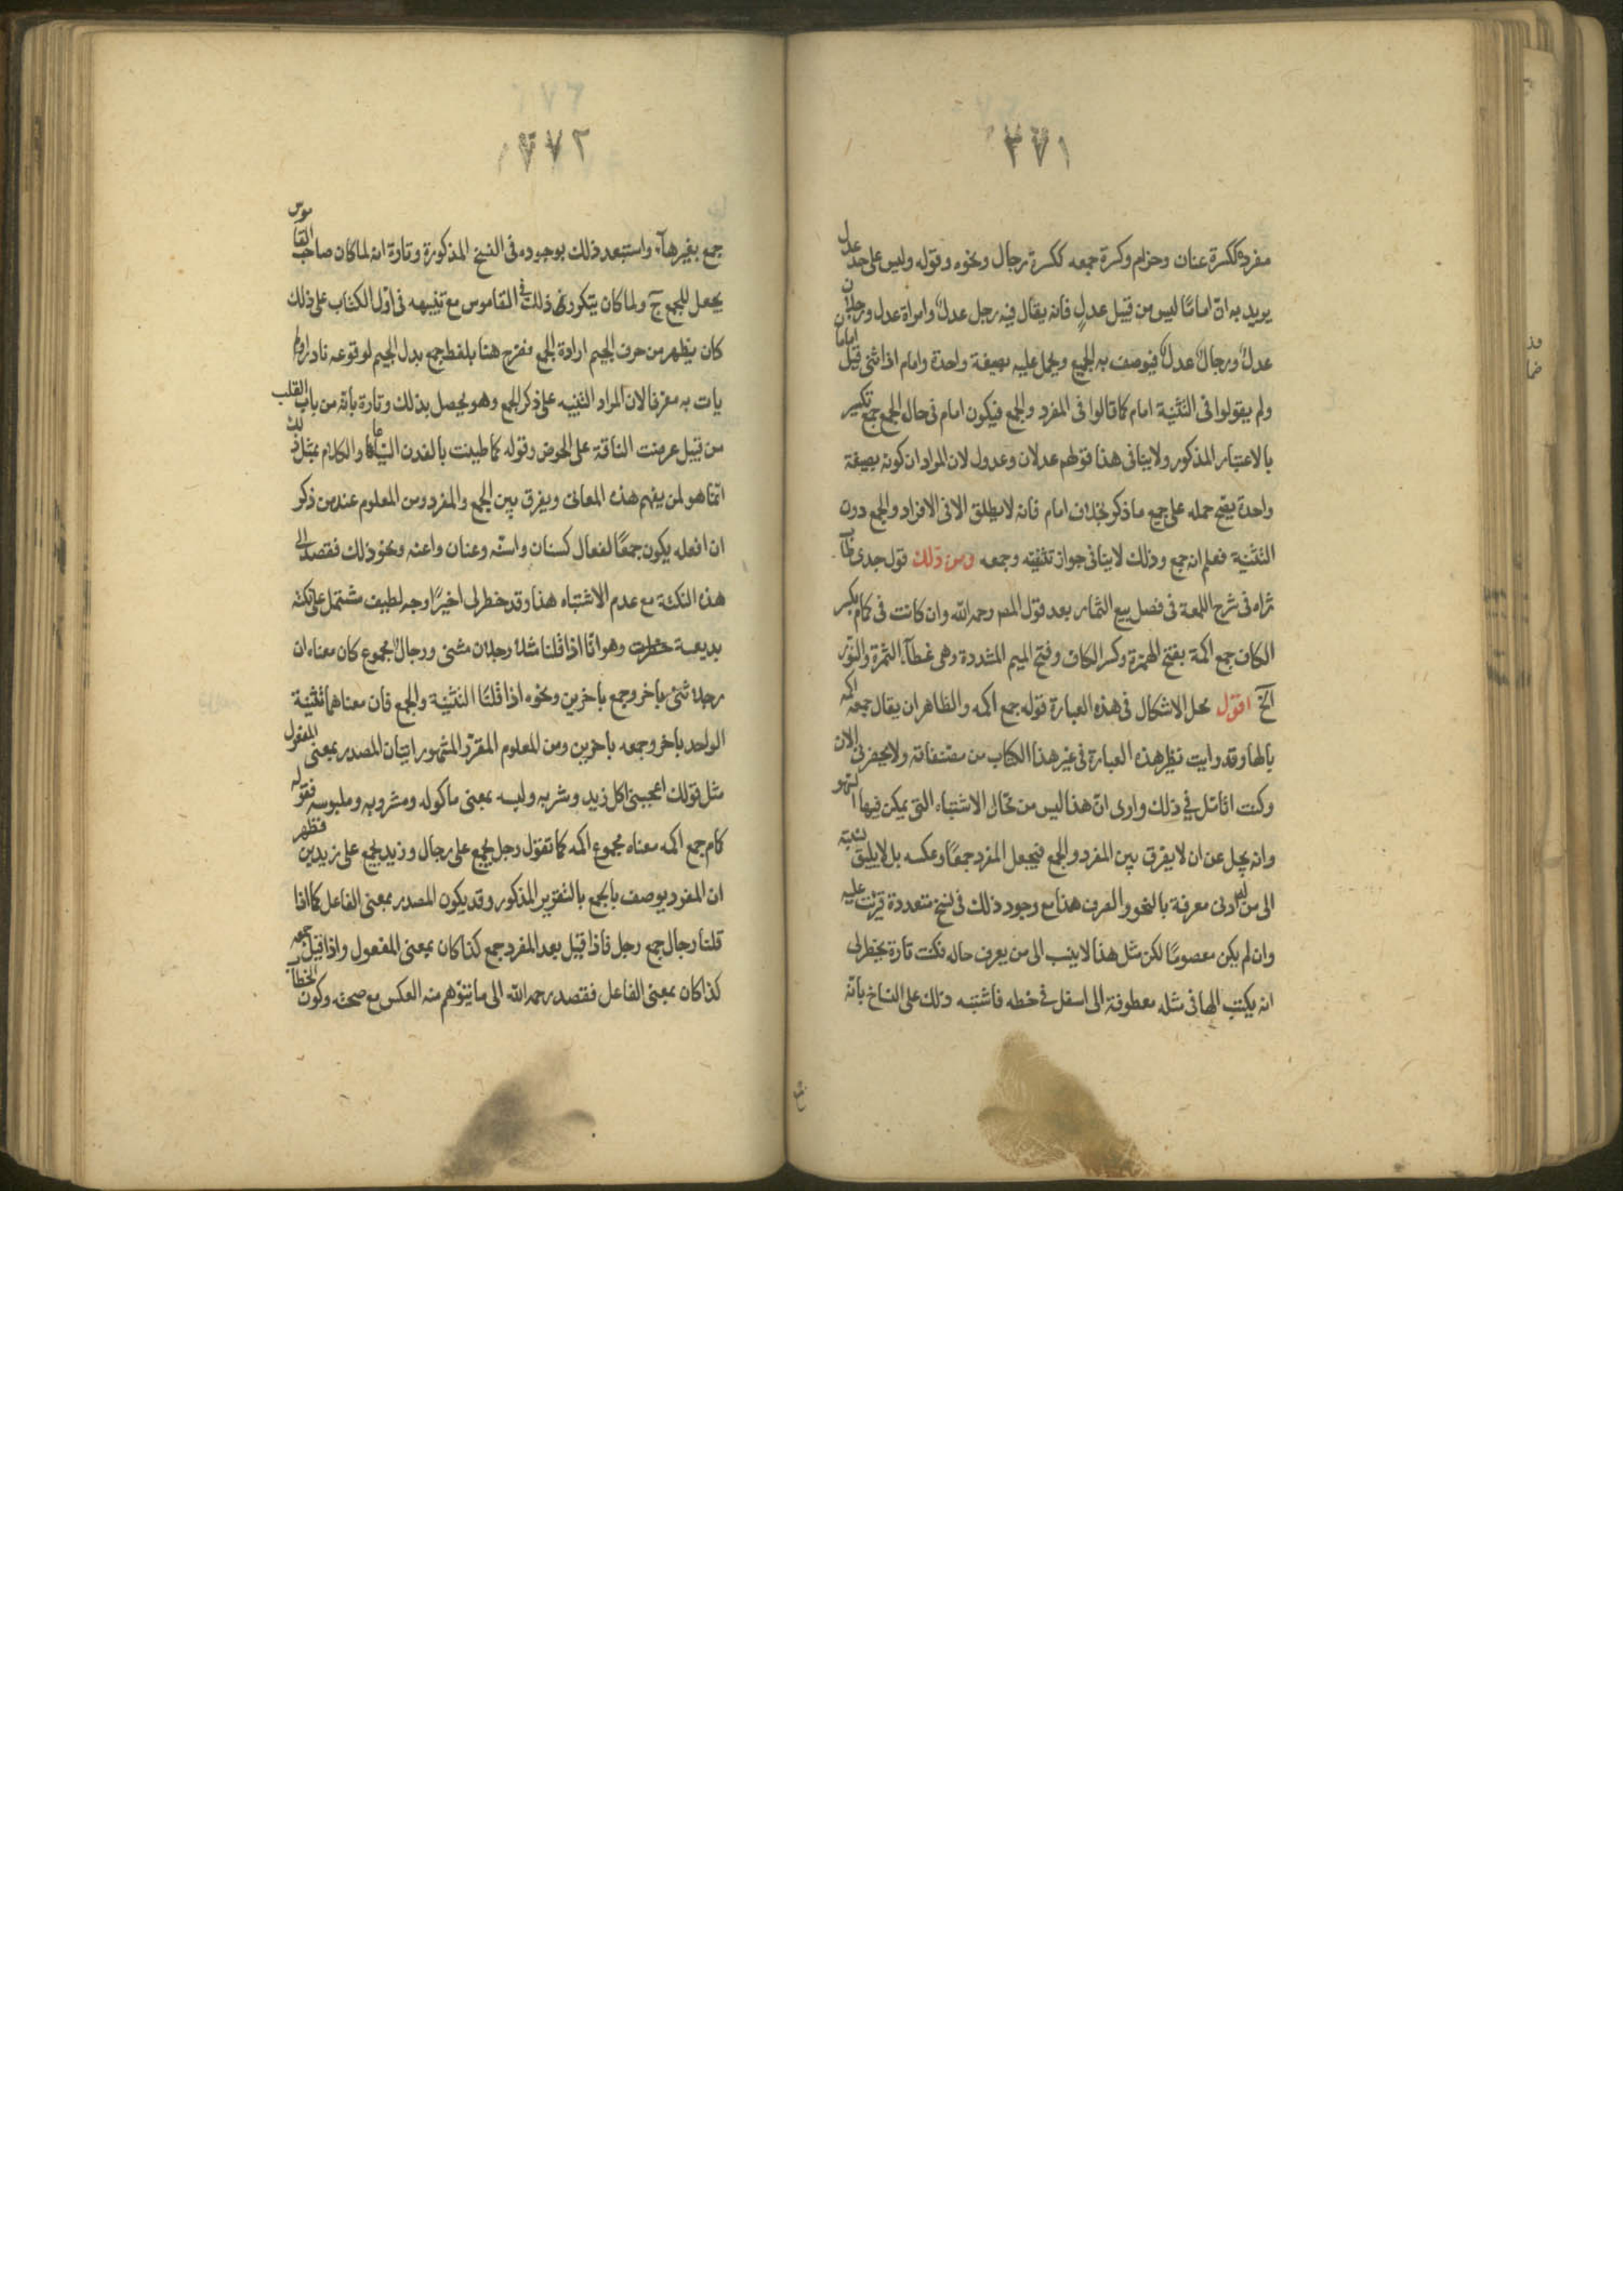 ٢٧١
مفرده ككسرة عنان وحزام وكسرة جمعه ككسرة رجال ونحوه وقوله وليس على حد عدل
يريد به ان اماما ليس من قبيل عدل فانه يقال فيه رجل عدل وامراة عدل ورجلان
عدل ورجال عدل فيوصف به الجميع ويحمل عليه بصيغة واحدة وامام اذا ثنى قيل امامان
ولم يقولوا فى التثنية امام كما قالوا فى المفرد والجمع فيكون امام فى حال الجمع جمع تكسير
بالاعتبار المذكور ولا ينافى هذا قولهم عدلان وعدول لان المراد ان كونه بصيغة
واحدة يصح حمله على جميع ما ذكر بخلاف امام فانه لا يطلق الا فى الافراد والجمع دون
التثنية فعلم انه جمع وذلك لا ينافى جواز تثنيته وجمعه ومن ذلك قول جدى طاب
ثراه فى شرح اللمعة فى فصل بيع الثمار بعد قول المصـ رحمه الله وان كانت فى كمام بكسر
الكاف جمع اكمة بفتح الهمزة وكسر الكاف وفتح الميم المشددة وهى غطآء الثمرة والنور
آلخ اقول محل الاشكال فى هذه العبارة قوله جمع اكمه والظاهر ان يقال جمعه اكمه
بالها وقد رايت نظير هذه العبارة فى غير هذا الكتاب من مصنفاته ولا يحضرنى الان
وكنت اتامل فى ذلك وارى ان هذا ليس من محال الاشتباه التى يمكن فيها السهو
وانه يجل عن ان لا يفرق بين المفرد والجمع فيجعل المفرد جمعا وعكسه بل لا يليق نسبته
الى من له ادنى معرفة بالنحو والصرف هذا مع وجود ذلك فى نسخ متعددة قرئت عليه
وان لم يكن معصوما لكن مثل هذا لا ينسب الى من يعرف حاله فكنت تارة يخطر لى
انه يكتب الها فى مثله معطوفة الى اسفل فى خطه فاشتبه ذلك على الناسخ بانه
٢٧٢
جمع بغير هآء واستبعد ذلك بوجوده فى النسخ المذكورة وتارة انه لما كان صاحب القاموس
يجعل للجمع ج ولما كان يتكرر ذلك فى القاموس مع تنبيهه فى اول الكتاب على ذلك
كان يظهر من حرف الجيم ارادة الجمع فصرح هنا بلفظ جمع بدل الجيم لوقوعه نادرا ولم
يات به معرفا لان المراد التنبيه على ذكر الجمع وهو يحصل بذلك وتارة بانه من باب القلب
من قبيل عرضت الناقة على الحوض وقوله كما طينت بالفدن السياعا والكلام بمثل ذلك
انما هو لمن يفهم هذه المعانى ويفرق بين الجمع والمفرد ومن المعلوم عند من ذكر
ان افعله يكون جمعا لفعال كسنان واسنه وعنان واعنه ونحو ذلك فقصد الى
هذه النكتة مع عدم الاشتباه هنا وقد خطر لى اخيرا وجه لطيف مشتمل على نكته
بديعة خطرت وهو انا اذا قلنا مثلا رجلان مثنى ورجال مجموع كان معناه ان
رجلا ثنى باخر وجمع باخرين ونحوه اذا قلنا التثنية والجمع فان معناهما تثنية
الواحد باخر وجمعه باخرين ومن المعلوم المقرر المشهور اتيان المصدر بمعنى المفعول
مثل قولك اعجبنى اكل زيد وشربه ولبسه بمعنى ماكوله ومشروبه وملبوسه فقوله
كمام جمع اكمه معناه مجموع اكمه كما تقول رجل يجمع على رجال وزيد يجمع على زيدين فظهر
ان المفرد يوصف بالجمع بالتقرير المذكور وقد يكون المصدر بمعنى الفاعل كما اذا
قلنا رجال جمع رجل فاذا قيل بعد المفرد جمع كذا كان بمعنى المفعول واذا قيل جمعه
كذا كان بمعنى الفاعل فقصد رحمه الله الى ما يتوهم منه العكس مع صحته وكون الخطاب